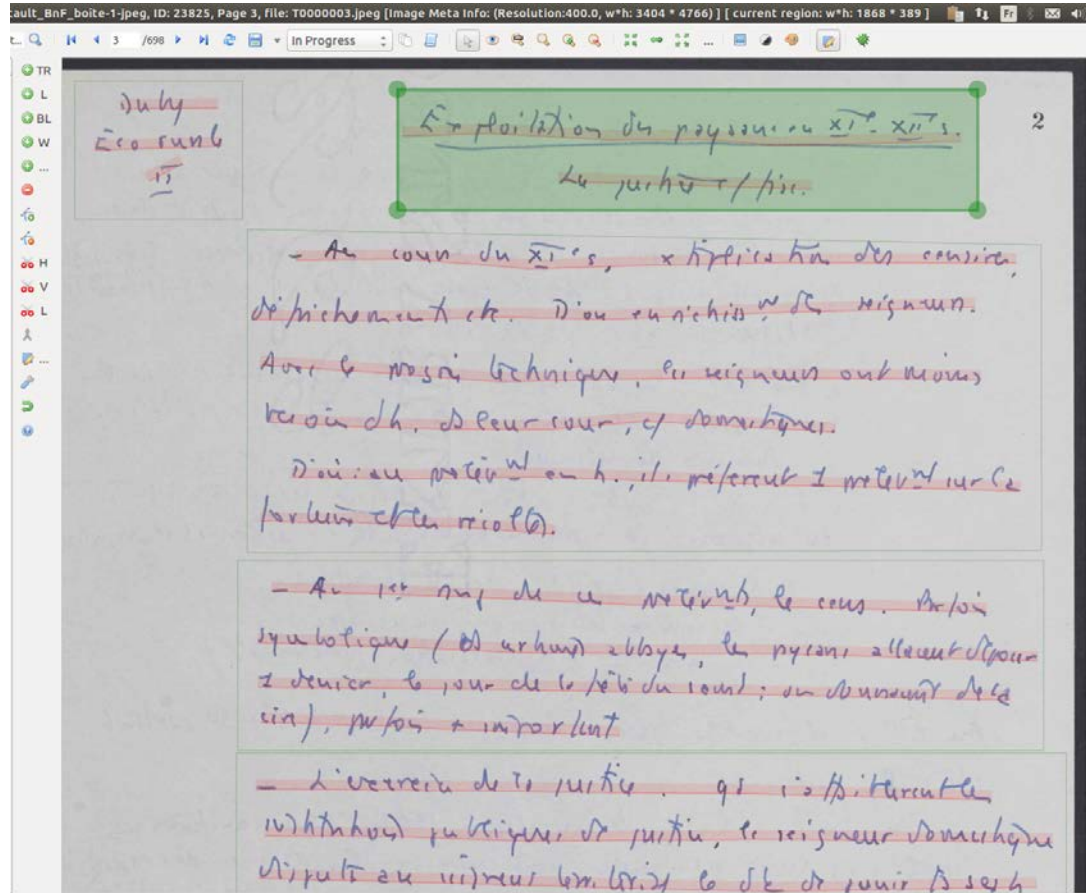 cault_BnF_boite-1-jpeg, ID: 23825, Page 3, file: T0000003.jpeg [Image Meta Info: (Resolution:400.0, w*h: 3404 * 4766) ] [ current region: w*h: 1868 * 389 ]
Fr
3 /698 In Progress
TR
L
BL
W
...
H
V
L
...
Duby
Eco rurale
II
Exploitation du paysan au XIe- XIIe s.
La justice et / fisc.
2
- Au cours du XIe s, xtiplication des censives,
défrichements etc. D'où enrichisst de seigneurs.
Avec le progrès technique, les seigneurs ont moins
besoin d'h. ds leur cour, c/ domestiques.
D'où: au prélèvnt en h., ils préfèrent 1 prélèvnt sur
les récoltes.
- Au 1er rang de ces prélèvnts, le cens. Parfois
symbolique ( abbayes, les paysans allaient
1 denier, le jour de la fête du saint; on donnait de la
cire), parfois + important
- L'exercice de la justice. qd
institutions publiques de justice, le seigneur domestique
dispute au seigneur le dt de punir